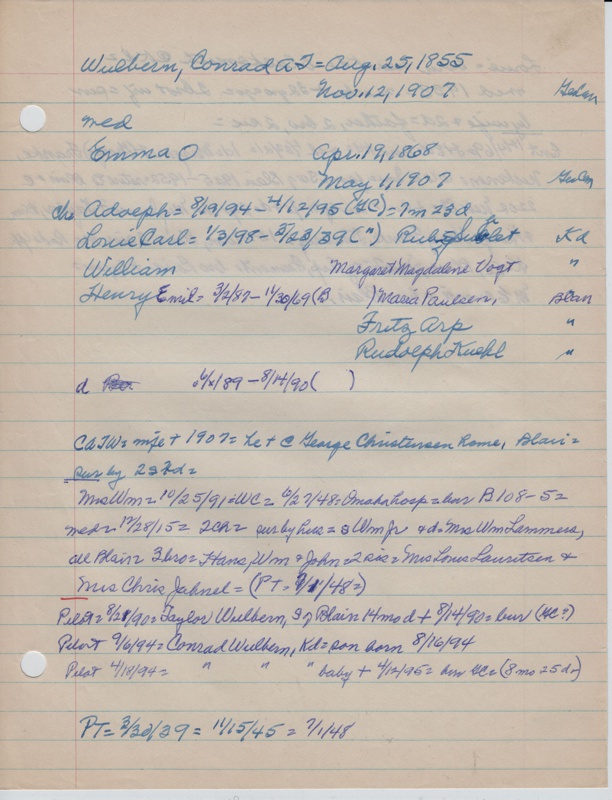 Wulbern, Conrad A J = Aug. 25, 1855
Nov. 12, 1907
med
Emma O Apr. 19, 1868
May 1, 1907
ch = Adolph = 8/19/94 - 4/12/95 (GC) = 7m 23d
Louie Carl = 1/3/98 - 3/23/39 (") Kd
William Margaret Magdalene Vogt "
Henry Emil = 3/2/87 - 11/30/69 (B ) Maria Paulsen, Blair
Fritz Arp "
Rudolph Kuehl "
d /89 - 8/14/90 ( )
CAJW = + 1907 = he + C George Christensen Home, Blair =
sur by 2s 3d =
Mrs Wm = 10/25/91 = WC = 6/27/48 = Omaha hosp = bur B 108-5 =
med = 12/28/15 = 2ch = sur by hus = s Wm Jr & d = Mrs Wm Lammers,
all Blair 3 bro = Hans, Wm & John = 2 sis = Mrs Louis Lauritsen &
Mrs Chris Jahnel = (PT = 7/1/48 =)
Pilot = 8/21/90 = Taylor Wulbern, Blair 14 mo d + 8/14/90 = bur (GC =)
Pilot 9/6/94 = Conrad Wulbern, Kd = son born 8/16/94
Pilot 4/18/94 = " " " baby + 4/12/95 = bur GC = (8 mo 25 d)
PT = 3/30/39 = 11/15/45 = 7/1/48